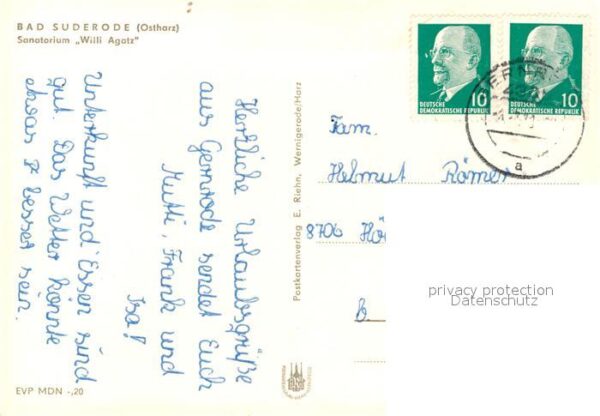 BAD SUDERODE (Ostharz)
Sanatorium „Willi Agatz"
Herzliche Urlaubsgrüße
aus Gernrode sendet Euch
Mutti, Frank und
Isa!
Unterkunft und Essen sind
gut. Das Wetter könnte
etwas besser sein.
EVP MDN -,20
Postkartenverlag E. Riehn, Wernigerode/Harz
DEUTSCHE
DEMOKRATISCHE REPUBLIK
10
DEUTSCHE
DEMOKRATISCHE REPUBLIK
10
a
Fam.
Helmut Römer
8706 Hö
b.
privacy protection
Datenschutz